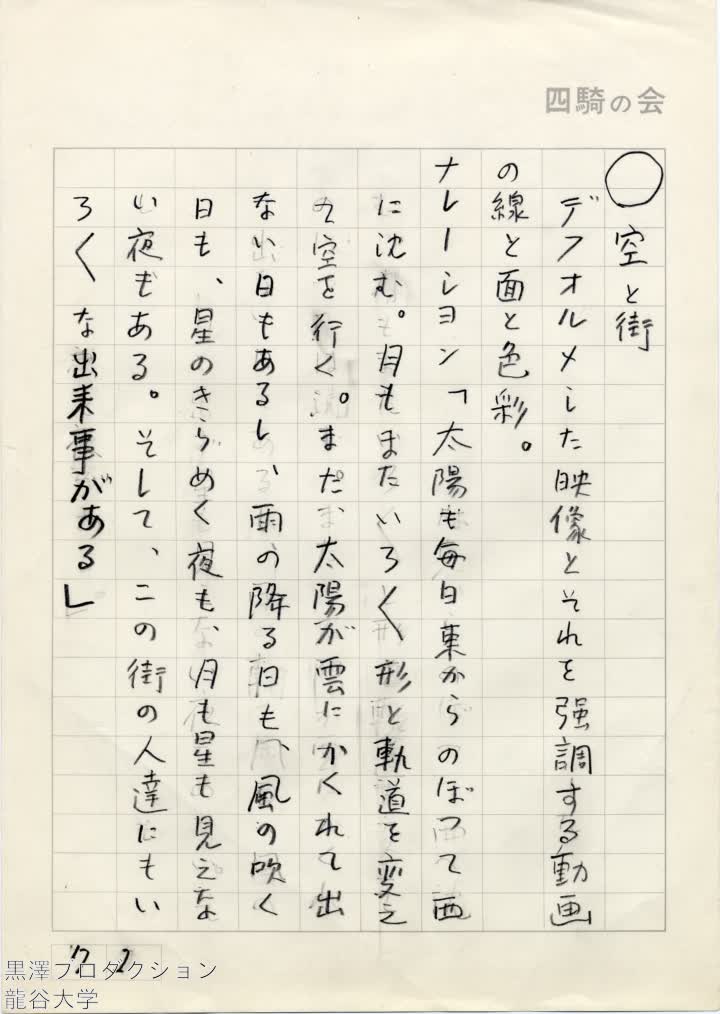 四騎の会
○ 空と街
デフォルメした映像とそれを強調する動画
の線と面と色彩。
ナレーション「太陽も毎日東からのぼつて西
に沈む。月もまたいろ〱形と軌道を変え
て空を行く。まだ、太陽が雲にかくれて出
ない日もあるし、雨の降る日も、風の吹く
日も、星のきらめく夜も、月も星も見えな
い夜もある。そして、この街の人達にもい
ろ〱な出来事がある」
黒澤プロダクション
龍谷大学